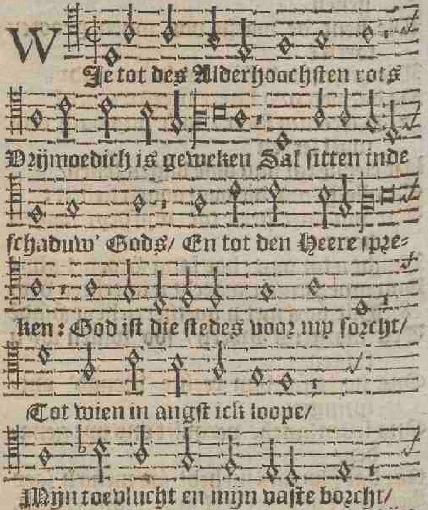 WJe tot des Alderhoochsten rots
Vrijmoedich is geweken Sal sitten inde
schaduw' Gods/ En tot den Heere spre-
ken: God ist die stedes voor my sorcht/
Tot wien in angst ick loope/
Mijn toevlucht en mijn vaste borcht/